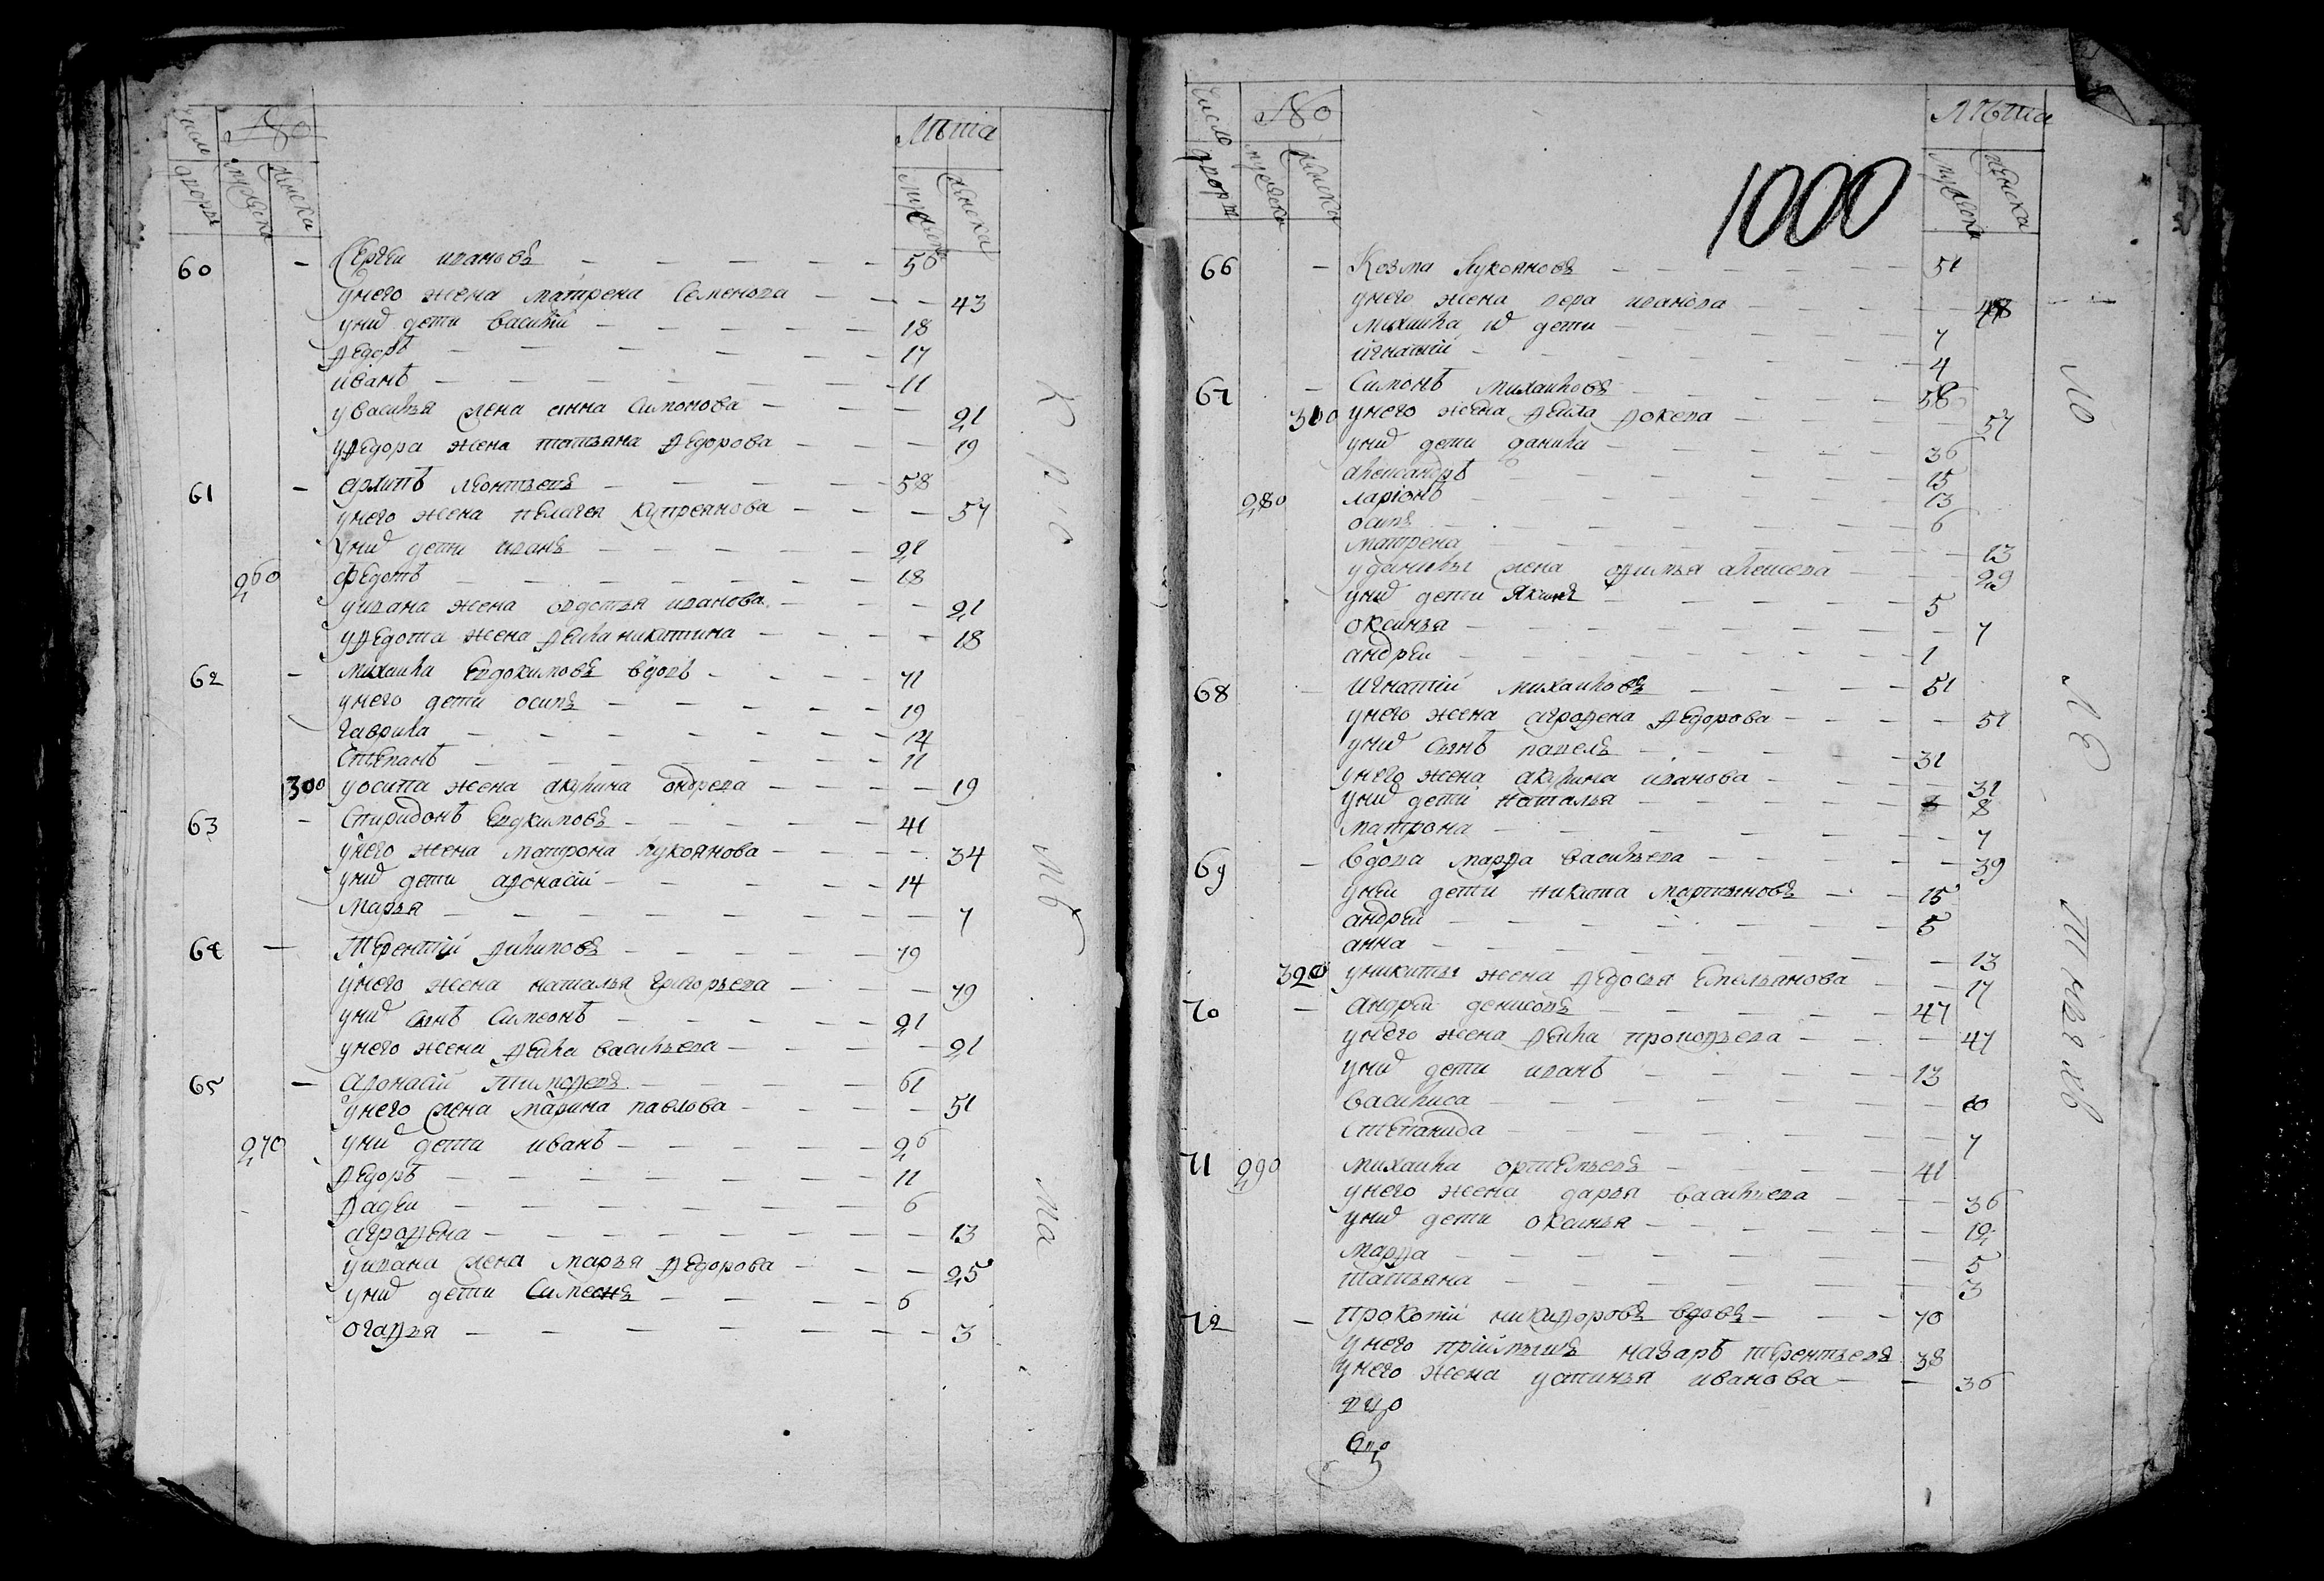 Число дворъ
№
мужеска
женска
Лѣта
мужеска
женска
60 - Сергеи ивановъ 56
унего жена матрена Семенова 43
униѡ дети василіи 18
ѳедоръ 17
иванъ 11
увасилья жена анна Симонова 21
уѳедора жена татьяна ѳедорова 19
61 - архипъ леонтьевъ 58
унего жена пелагея купреянова 57
униѡ дети иванъ 21
260 ѳедотъ 18
уивана жена авдотья иванова 21
уѳедота жена ѳекла никитина 18
62 - михаила Евдокимовъ вдовъ 41
унего дети осипъ 19
гаврила 14
Степанъ 11
300 уосипа жена акулина андреева 19
63 - Спиридонъ Евдкимовъ 41
унего жена матрона лукоянова 34
униѡ дети аѳонасіи 14
Марья 7
64 - Терентіи ѳилиповъ 79
унего жена наталья григорьева 79
униѡ сынъ Симеонъ 21
унего жена ѳекла васильева 21
65 - аѳонасіи Тимоѳеевъ 61
унего жена марина павлова 51
270 униѡ дети иванъ 26
ѳедоръ 11
ѳадеи 6
аграѳена 13
уивана жена марья ѳедорова 25
униѡ дети Симеонъ 6
огаѳья 3
Число дворъ
№
мужеска
женска
1000
Лѣта
мужеска
женска
66 - Козма лукояновъ 51
унего жена вера иванова 48
михаила ѡ дети 7
игнатіи 4
67 - Симонъ михаиловъ 58
310 унего жена ѳекла ѳокева 57
униѡ дети данила 36
александръ 15
280 ларіонъ 13
осипъ 6
матрена 13
уданилы жена оѳимья алешева 29
униѡ дети якимъ 5
оксинья 7
андреи 1
68 - игнатіи михаиловъ 51
унего жена аграѳена ѳедорова 51
униѡ сынъ павелъ 31
унего жена акулина иванова 31
униѡ дети наталья 8
матрона 7
69 - вдова марѳа васильева 39
унеи дети никита мартыновъ 15
андреи 5
анна 13
320 уникиты жена ѳедосья Емельянова 17
70 - андреи денисовъ 47
унего жена ѳекла прокоѳьева 47
униѡ дети иванъ 13
василиса 10
Степанида 7
71 290 михаила артемьевъ 41
унего жена дарья васильева 36
униѡ дети оксинья 12
марѳа 5
татьяна 3
72 - прокопіи никиѳоровъ вдовъ 70
унего пріимышъ назаръ терентьевъ 38
унего жена устинья иванова 36